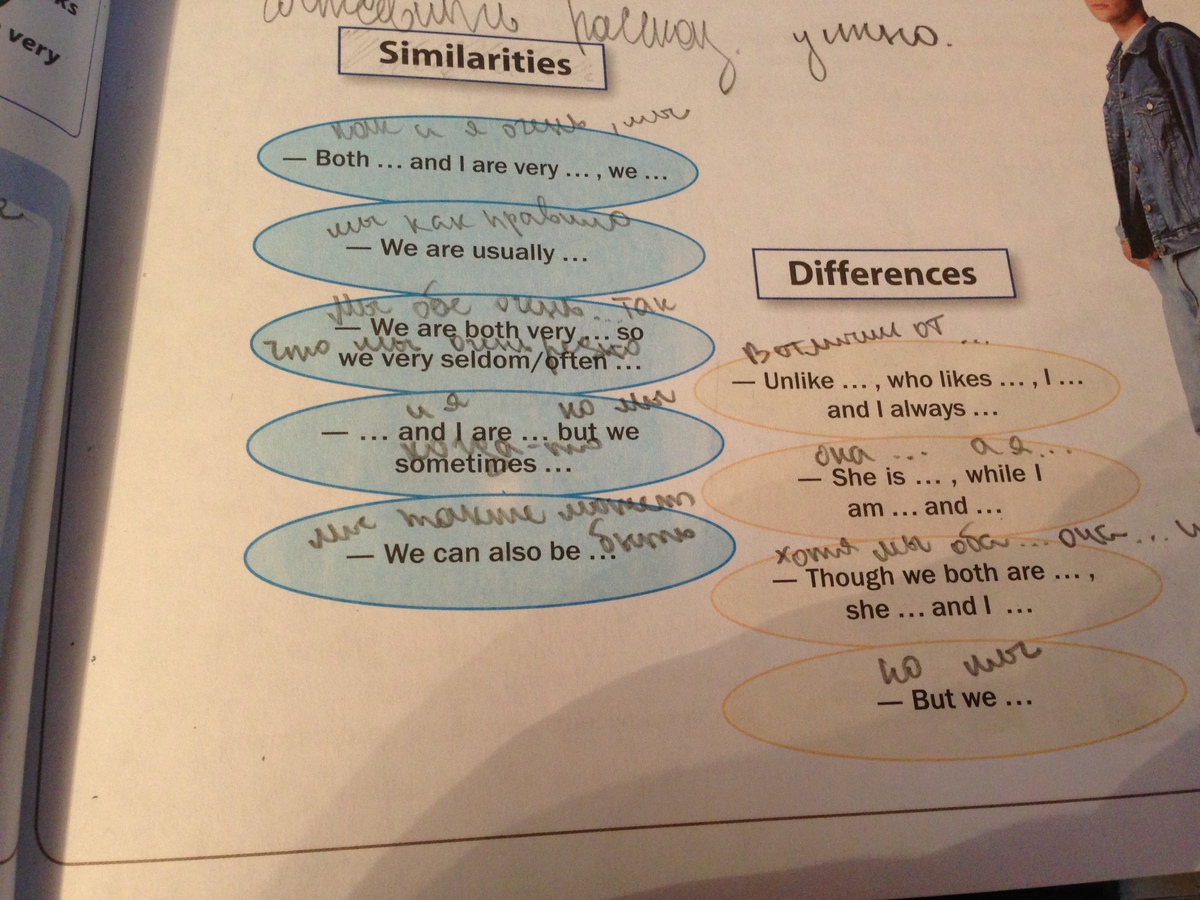 ks
very
составить рассказ. устно.
Similarities
как и я очень, мы
— Both ... and I are very ... , we ...
мы как правило
— We are usually ...
Мы обе очень...так
— We are both very ... so
что мы очень редко
we very seldom/often ...
и я но мы
— ... and I are ... but we
когда-то
sometimes ...
мы также можем
быть
— We can also be ...
Differences
В отличии от ...
— Unlike ... , who likes ... , I ...
and I always ...
она ... а я...
— She is ... , while I
am ... and ...
хотя мы оба ... она ... и
— Though we both are ... ,
she ... and I ...
но мы
— But we ...